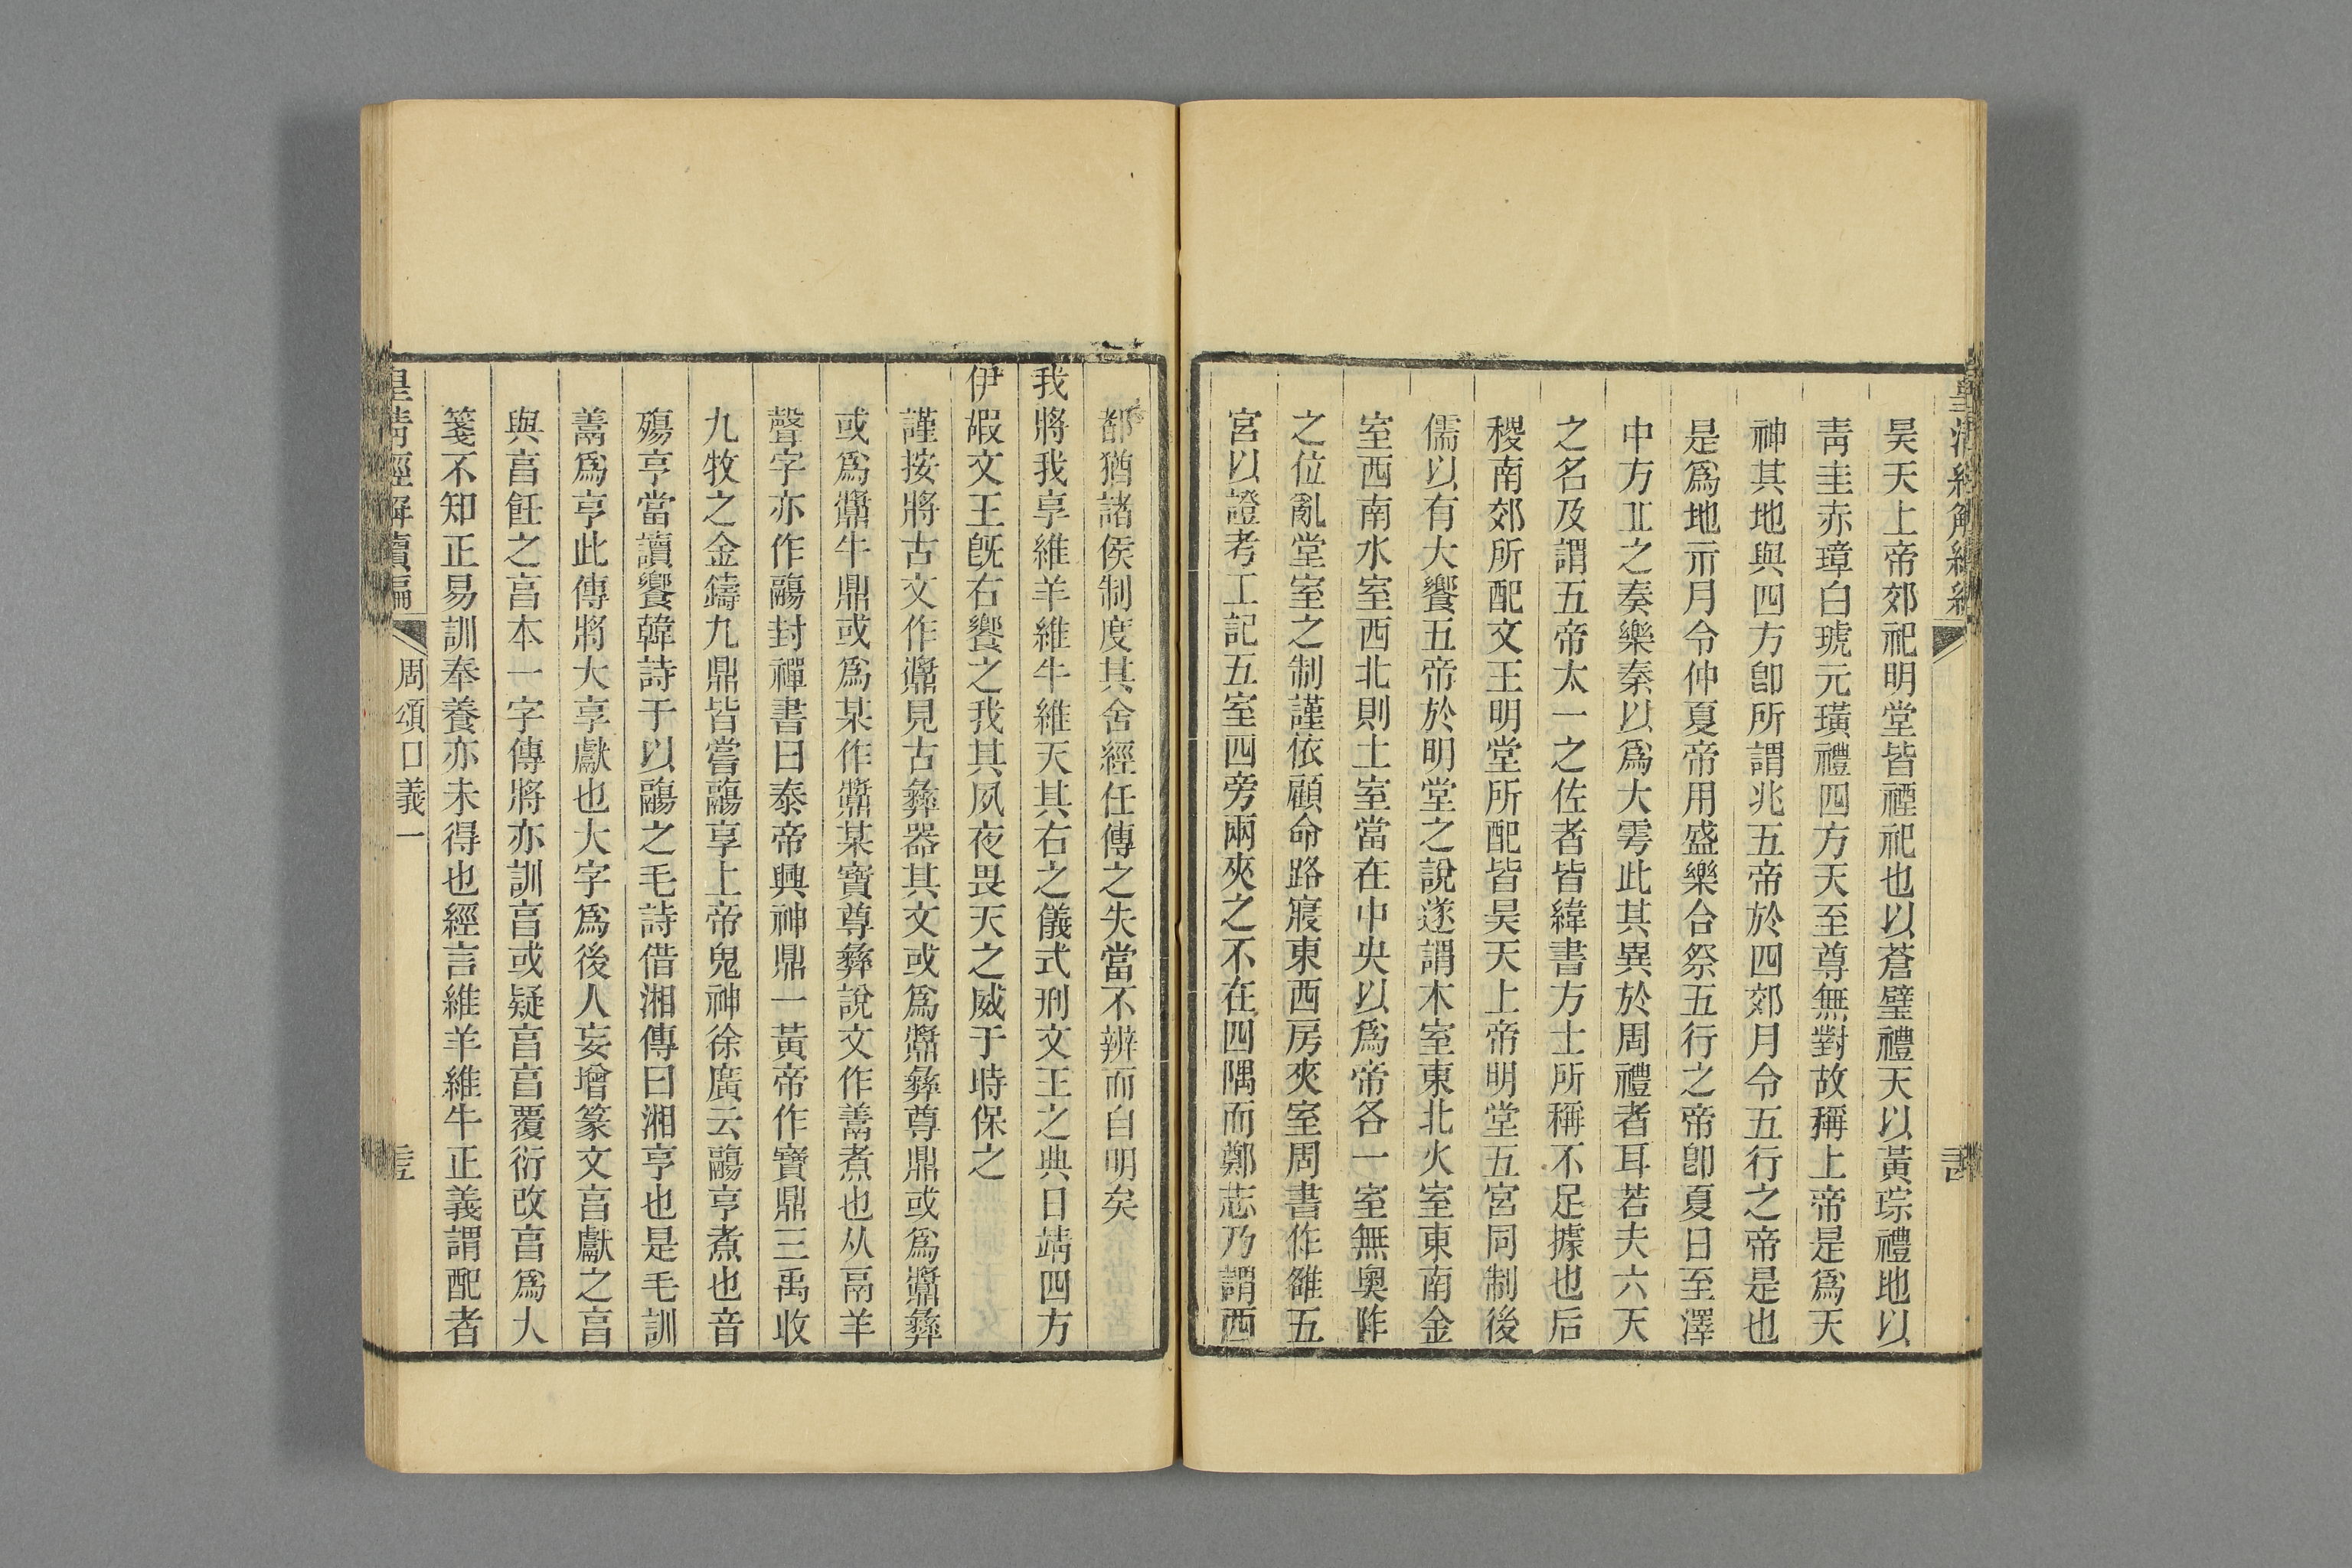 昊天上帝郊祀明堂皆禋祀也以蒼璧禮天以黃琮禮地以
靑圭赤璋白琥元璜禮四方天至尊無對故稱上帝是爲天
神其地與四方卽所謂兆五帝於四郊月令五行之帝是也
是爲地示月令仲夏帝用盛樂合祭五行之帝卽夏日至澤
中方丘之奏樂秦以爲大雩此其異於周禮者耳若夫六天
之名及謂五帝太一之佐者皆緯書方士所稱不足據也后
稷南郊所配文王明堂所配皆昊天上帝明堂五宮同制後
儒以有大饗五帝於明堂之說遂謂木室東北火室東南金
室西南水室西北則土室當在中央以爲帝各一室無奧阼
之位亂堂室之制謹依顧命路寢東西房夾室周書作雒五
宮以證考工記五室四旁兩夾之不在四隅而鄭志乃謂西
都猶諸侯制度其舍經任傳之失當不辨而自明矣
我將我享維羊維牛維天其右之儀式刑文王之典日靖四方
伊嘏文王旣右饗之我其夙夜畏天之威于時保之
謹按將古文作鷊見古彝器其文或爲鷊彝尊鼎或爲鷊彝
或爲鷊牛鼎或爲某作鷊某寶尊彝說文作䵼煮也从鬲羊
聲字亦作鬺封禪書曰泰帝興神鼎一黃帝作寶鼎三禹收
九牧之金鑄九鼎皆嘗鬺享上帝鬼神徐廣云鬺亨煮也音
殤亨當讀饗韓詩于以鬺之毛詩借湘傳曰湘亨也是毛訓
䵼爲亨此傳將大享獻也大字爲後人妄增篆文亯獻之亯
與亯飪之亯本一字傳將亦訓亯或疑亯亯覆衍改亯爲大
箋不知正易訓奉養亦未得也經言維羊維牛正義謂配者
皇淸經解續編
周頌口義一